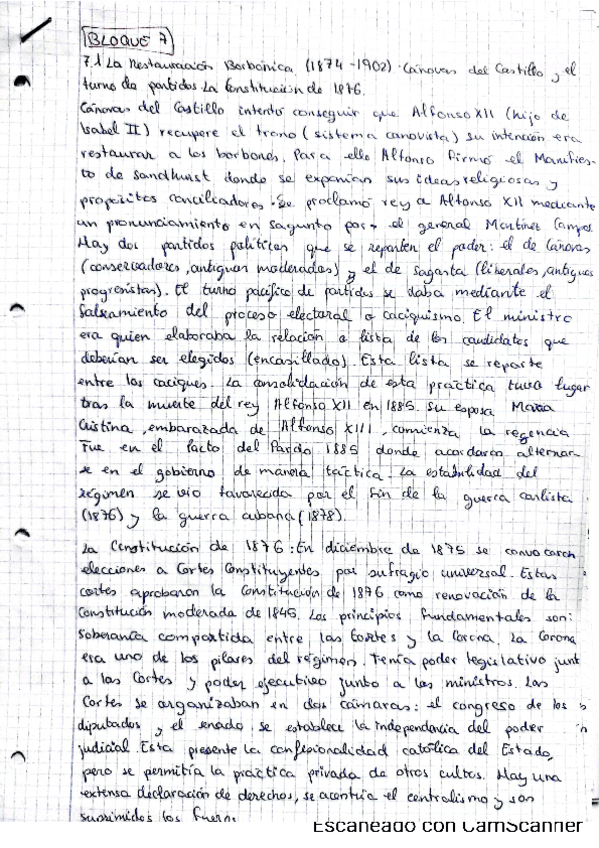 BLOQUE 7
7.1 La Restauración Borbónica (1874-1902) Cánovas del Castillo y el
turno de partidos. La Constitución de 1876.
Cánovas del Castillo intentó conseguir que Alfonso XII (hijo de
Isabel II) recupere el trono (sistema canovista) su intención era
restaurar a los borbones. Para ello Alfonso firmó el Manifies-
to de Sandhurst donde se exponían sus ideas religiosas y
propósitos conciliadores. Se proclamó rey a Alfonso XII mediante
un pronunciamiento en Sagunto por el general Martínez Campos.
Hay dos partidos políticos que se reparten el poder: el de Cánovas
(conservadores, antiguos moderados) y el de Sagasta (liberales, antiguos
progresistas). El turno pacífico de partidos se daba mediante el
falseamiento del proceso electoral o caciquismo. El ministro
era quien elaboraba la relación o lista de los candidatos que
deberían ser elegidos (encasillado). Esta lista se reparte
entre los caciques. La consolidación de esta práctica tuvo lugar
tras la muerte del rey Alfonso XII en 1885. Su esposa María
Cristina, embarazada de Alfonso XIII, comienza la regencia
Fue en el Pacto del Pardo 1885 donde acordaron alternar-
se en el gobierno de manera táctica. La estabilidad del
régimen se vio favorecida por el fin de la guerra carlista
(1876) y la guerra cubana (1878).
La Constitución de 1876: En diciembre de 1875 se convocaron
elecciones a Cortes Constituyentes por sufragio universal. Estas
cortes aprobaron la Constitución de 1876 como renovación de la
Constitución moderada de 1845. Los principios fundamentales son:
Soberanía compartida entre las Cortes y la Corona. La Corona
era uno de los pilares del régimen. Tenía poder legislativo junt
a las Cortes y poder ejecutivo junto a los ministros. Las
Cortes se organizaban en dos cámaras: el congreso de los
diputados y el senado, se establece la independencia del poder
judicial. Esta presente la confesionalidad católica del Estado,
pero se permitía la práctica privada de otros cultos. Hay una
extensa declaración de derechos, se acentúa el centralismo y son
suprimidos los fueros
Escaneado con CamScanner